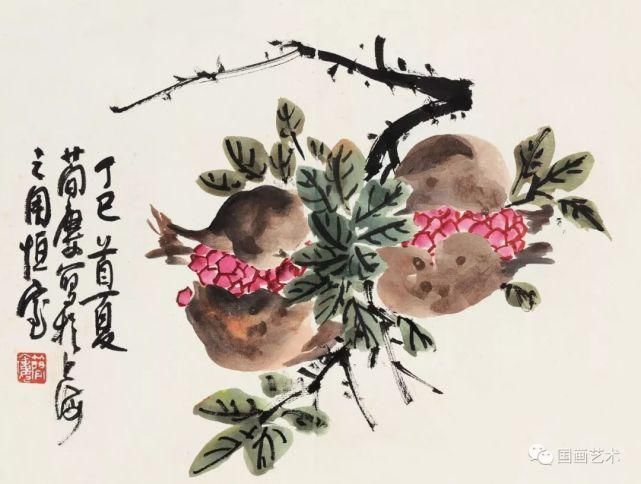 丁巳首夏
蕳廔写於上海
之用恒室
国画艺术